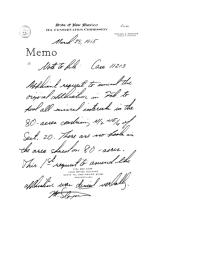 State of New Mexico
OIL CONSERVATION COMMISSION
Memo
Note to file Case 11213
Applicant request to amend the
original application in to
pool all mineral interests in the
80-acres containing N/2 of
Sect. 20. There are no pools in
the area based on 80-acres.
This 1st request to amend the
application was denied verbally.